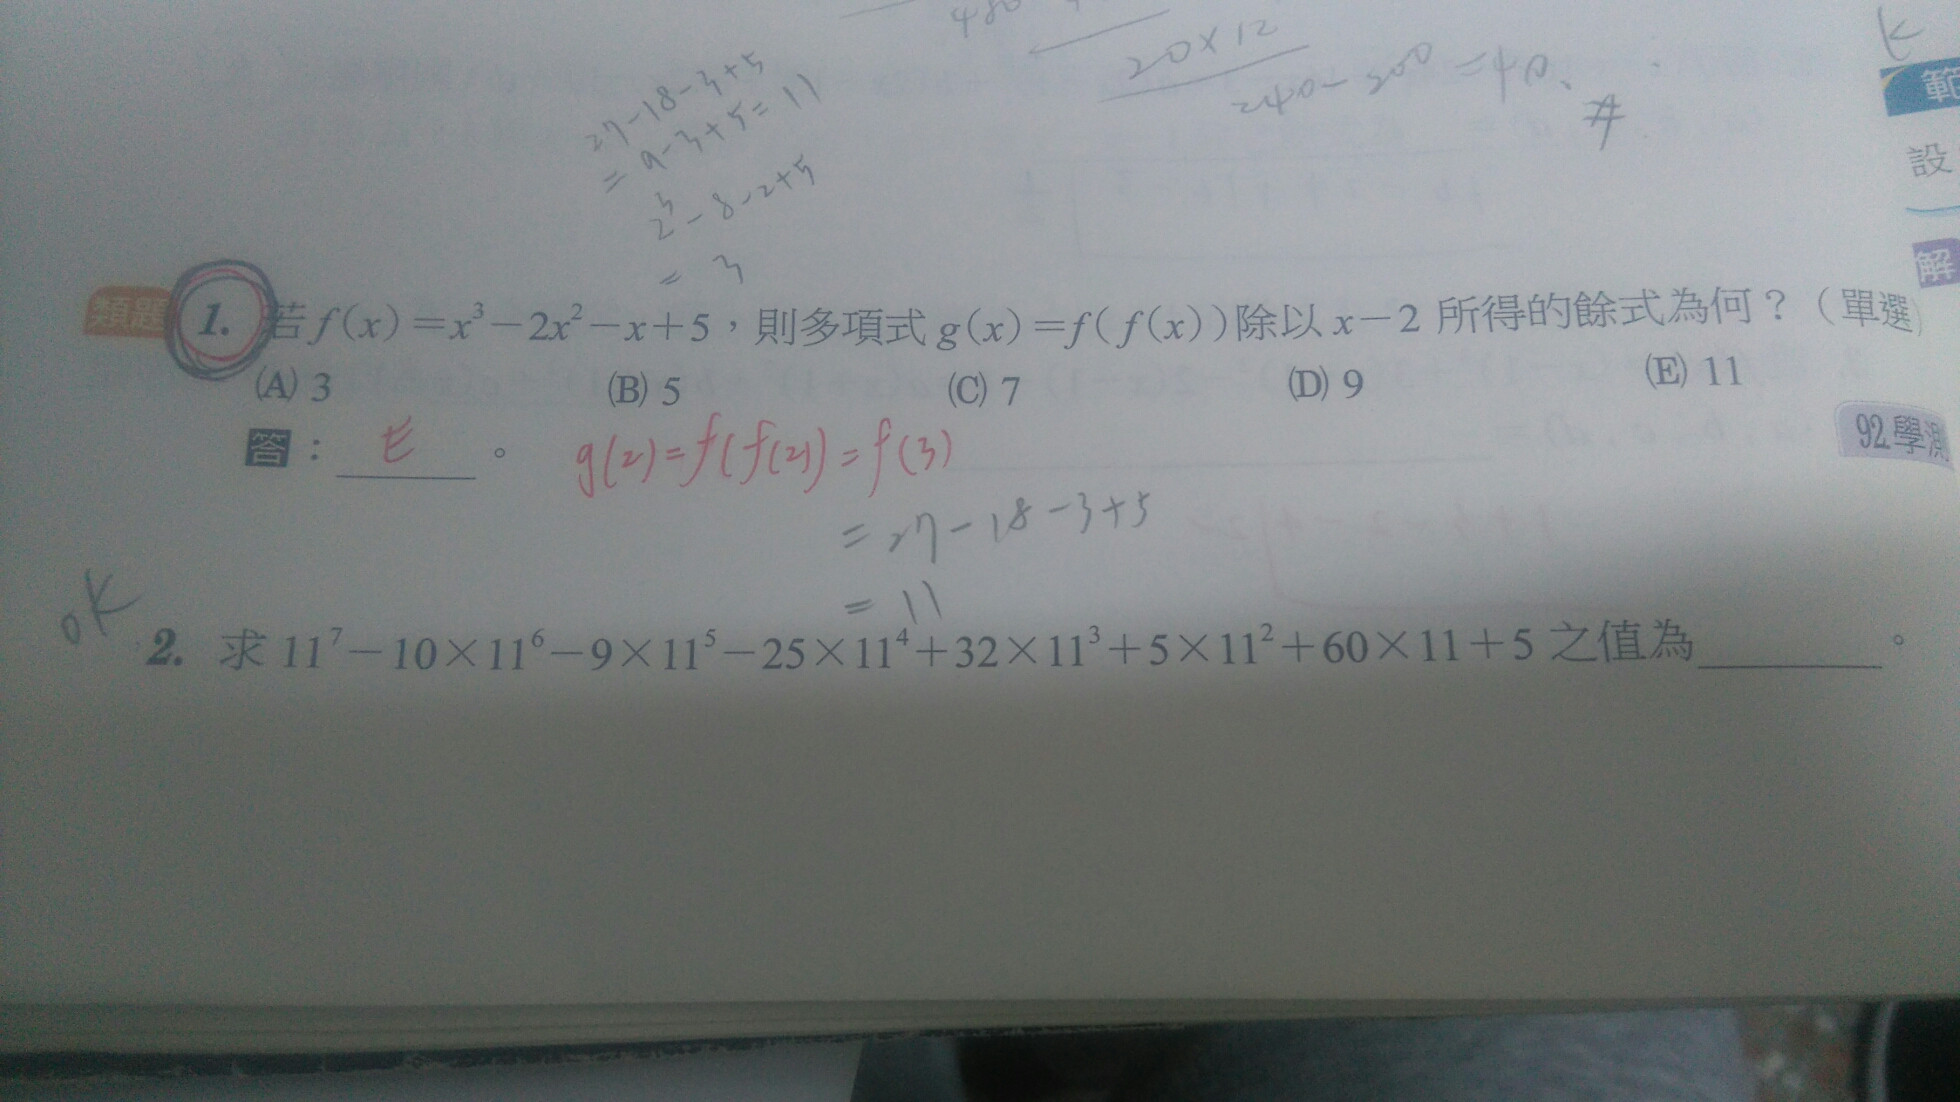 20×12
240-200=40.
#
K
範
設
解
27-18-3+5
=9-3+5=11
2³-8-2+5
= 3
類題 1. 若f(x)=x³-2x²-x+5，則多項式g(x)=f(f(x))除以x-2 所得的餘式為何？（單選）
(A) 3 (B) 5 (C) 7 (D) 9 (E) 11
92.學測
答： E 。 g(2)=f(f(2))=f(3)
= 27-18-3+5
= 11
OK
2. 求 11⁷-10×11⁶-9×11⁵-25×11⁴+32×11³+5×11²+60×11+5 之值為________。